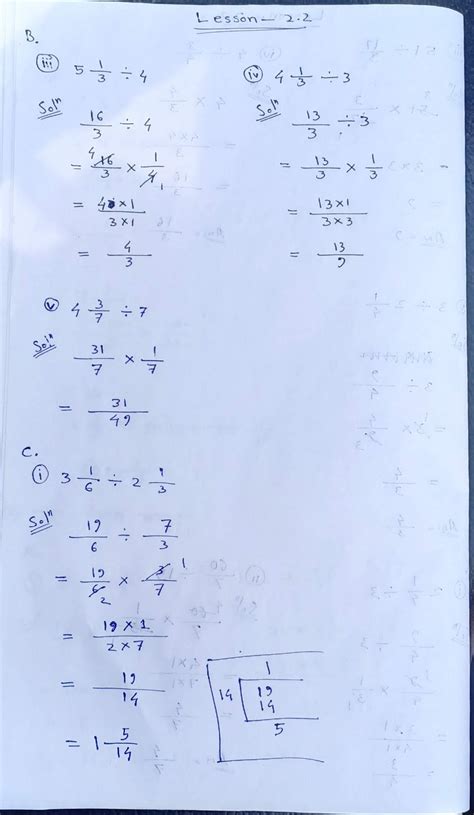 Lesson - 2.2
B.
(iii) 5 1/3 ÷ 4
Solⁿ 16/3 ÷ 4
= 16/3 × 1/4 4 1
= 4 × 1 / 3 × 1
= 4/3
(iv) 4 1/3 ÷ 3
Solⁿ 13/3 ÷ 3
= 13/3 × 1/3
= 13 × 1 / 3 × 3
= 13/9
(v) 4 3/7 ÷ 7
Solⁿ 31/7 × 1/7
= 31/49
C.
(i) 3 1/6 ÷ 2 1/3
Solⁿ 19/6 ÷ 7/3
= 19/6 × 3/7 2 1
= 19 × 1 / 2 × 7
= 19/14
= 1 5/14
1
14 19
14
5